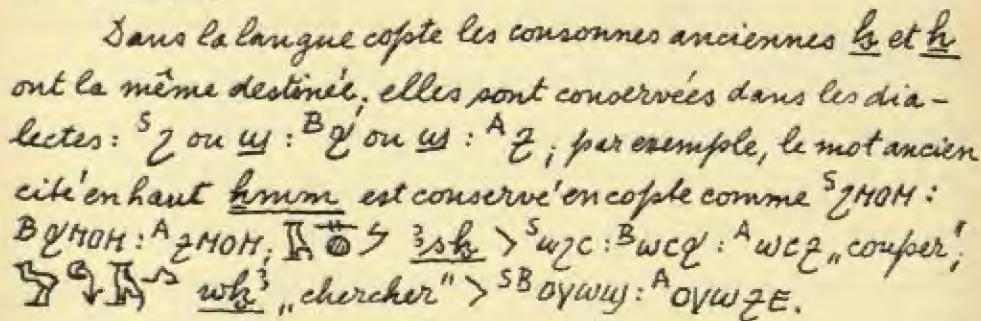 Dans la langue copte les consonnes anciennes ḫ et ẖ
ont la même destinée; elles sont conservées dans les dia-
lectes: ˢϩ ou ϣ : ᴮϧ ou ϣ : ᴬⳉ; par exemple, le mot ancien
cité en haut ẖmm est conservé en copte comme ˢϩⲙⲟⲙ :
ᴮϧⲙⲟⲙ : ᴬⳉⲙⲟⲙ; ꜣsḫ > ˢⲱϩⲥ : ᴮⲱⲥϧ : ᴬⲱⲥⳉ „couper";
wḫꜣ „chercher" > ˢᴮⲟⲩⲱϣ : ᴬⲟⲩⲱⳉⲉ.